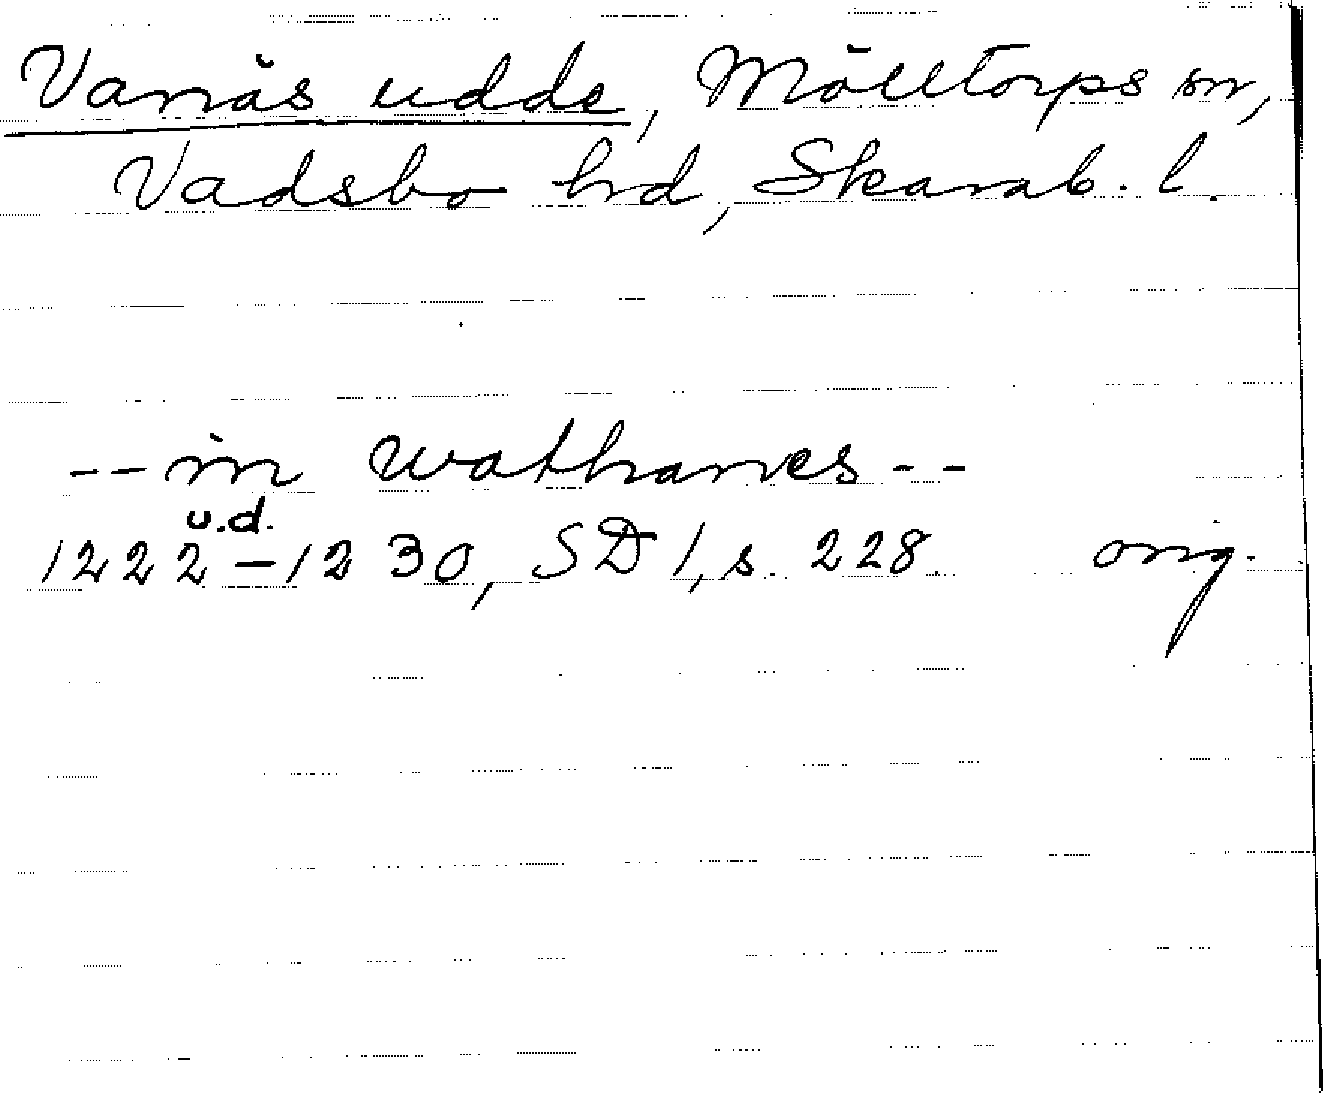 Vanäs udde, Mölltorps sn,
Vadsbo hd, Skarab. l.
-- in wathanes --
u.d.
1222-1230, SD 1, s. 228. orig.